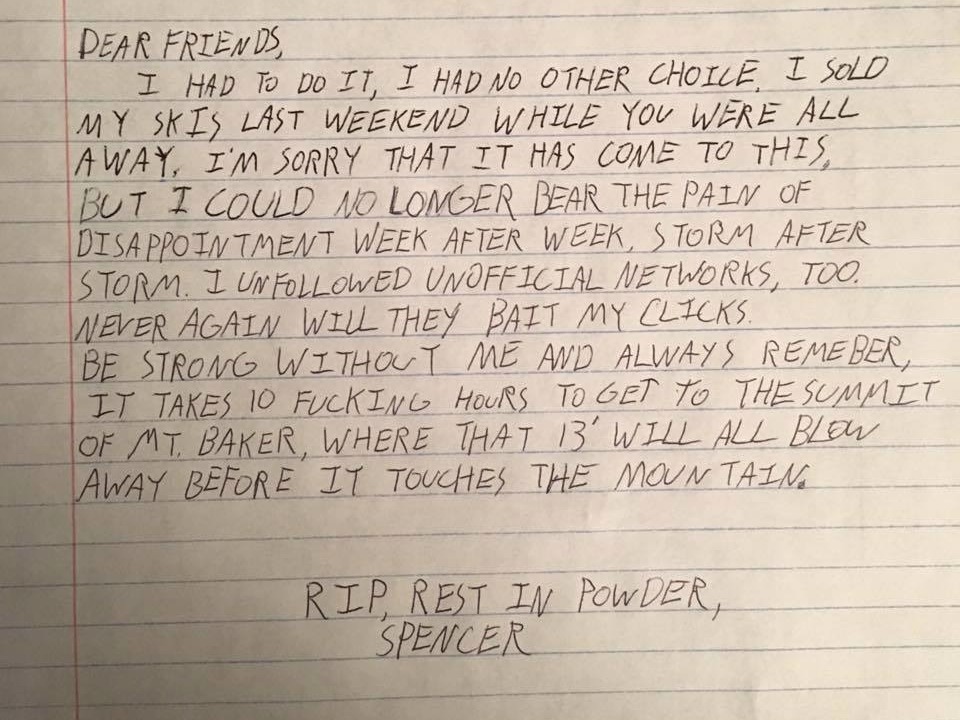 DEAR FRIENDS,
I HAD TO DO IT, I HAD NO OTHER CHOICE. I SOLD
MY SKIS LAST WEEKEND WHILE YOU WERE ALL
AWAY. I'M SORRY THAT IT HAS COME TO THIS,
BUT I COULD NO LONGER BEAR THE PAIN OF
DISAPPOINTMENT WEEK AFTER WEEK, STORM AFTER
STORM. I UNFOLLOWED UNOFFICIAL NETWORKS, TOO.
NEVER AGAIN WILL THEY BAIT MY CLICKS.
BE STRONG WITHOUT ME AND ALWAYS REMEBER,
IT TAKES 10 FUCKING HOURS TO GET TO THE SUMMIT
OF MT. BAKER, WHERE THAT 13' WILL ALL BLOW
AWAY BEFORE IT TOUCHES THE MOUNTAIN.
RIP, REST IN POWDER,
SPENCER